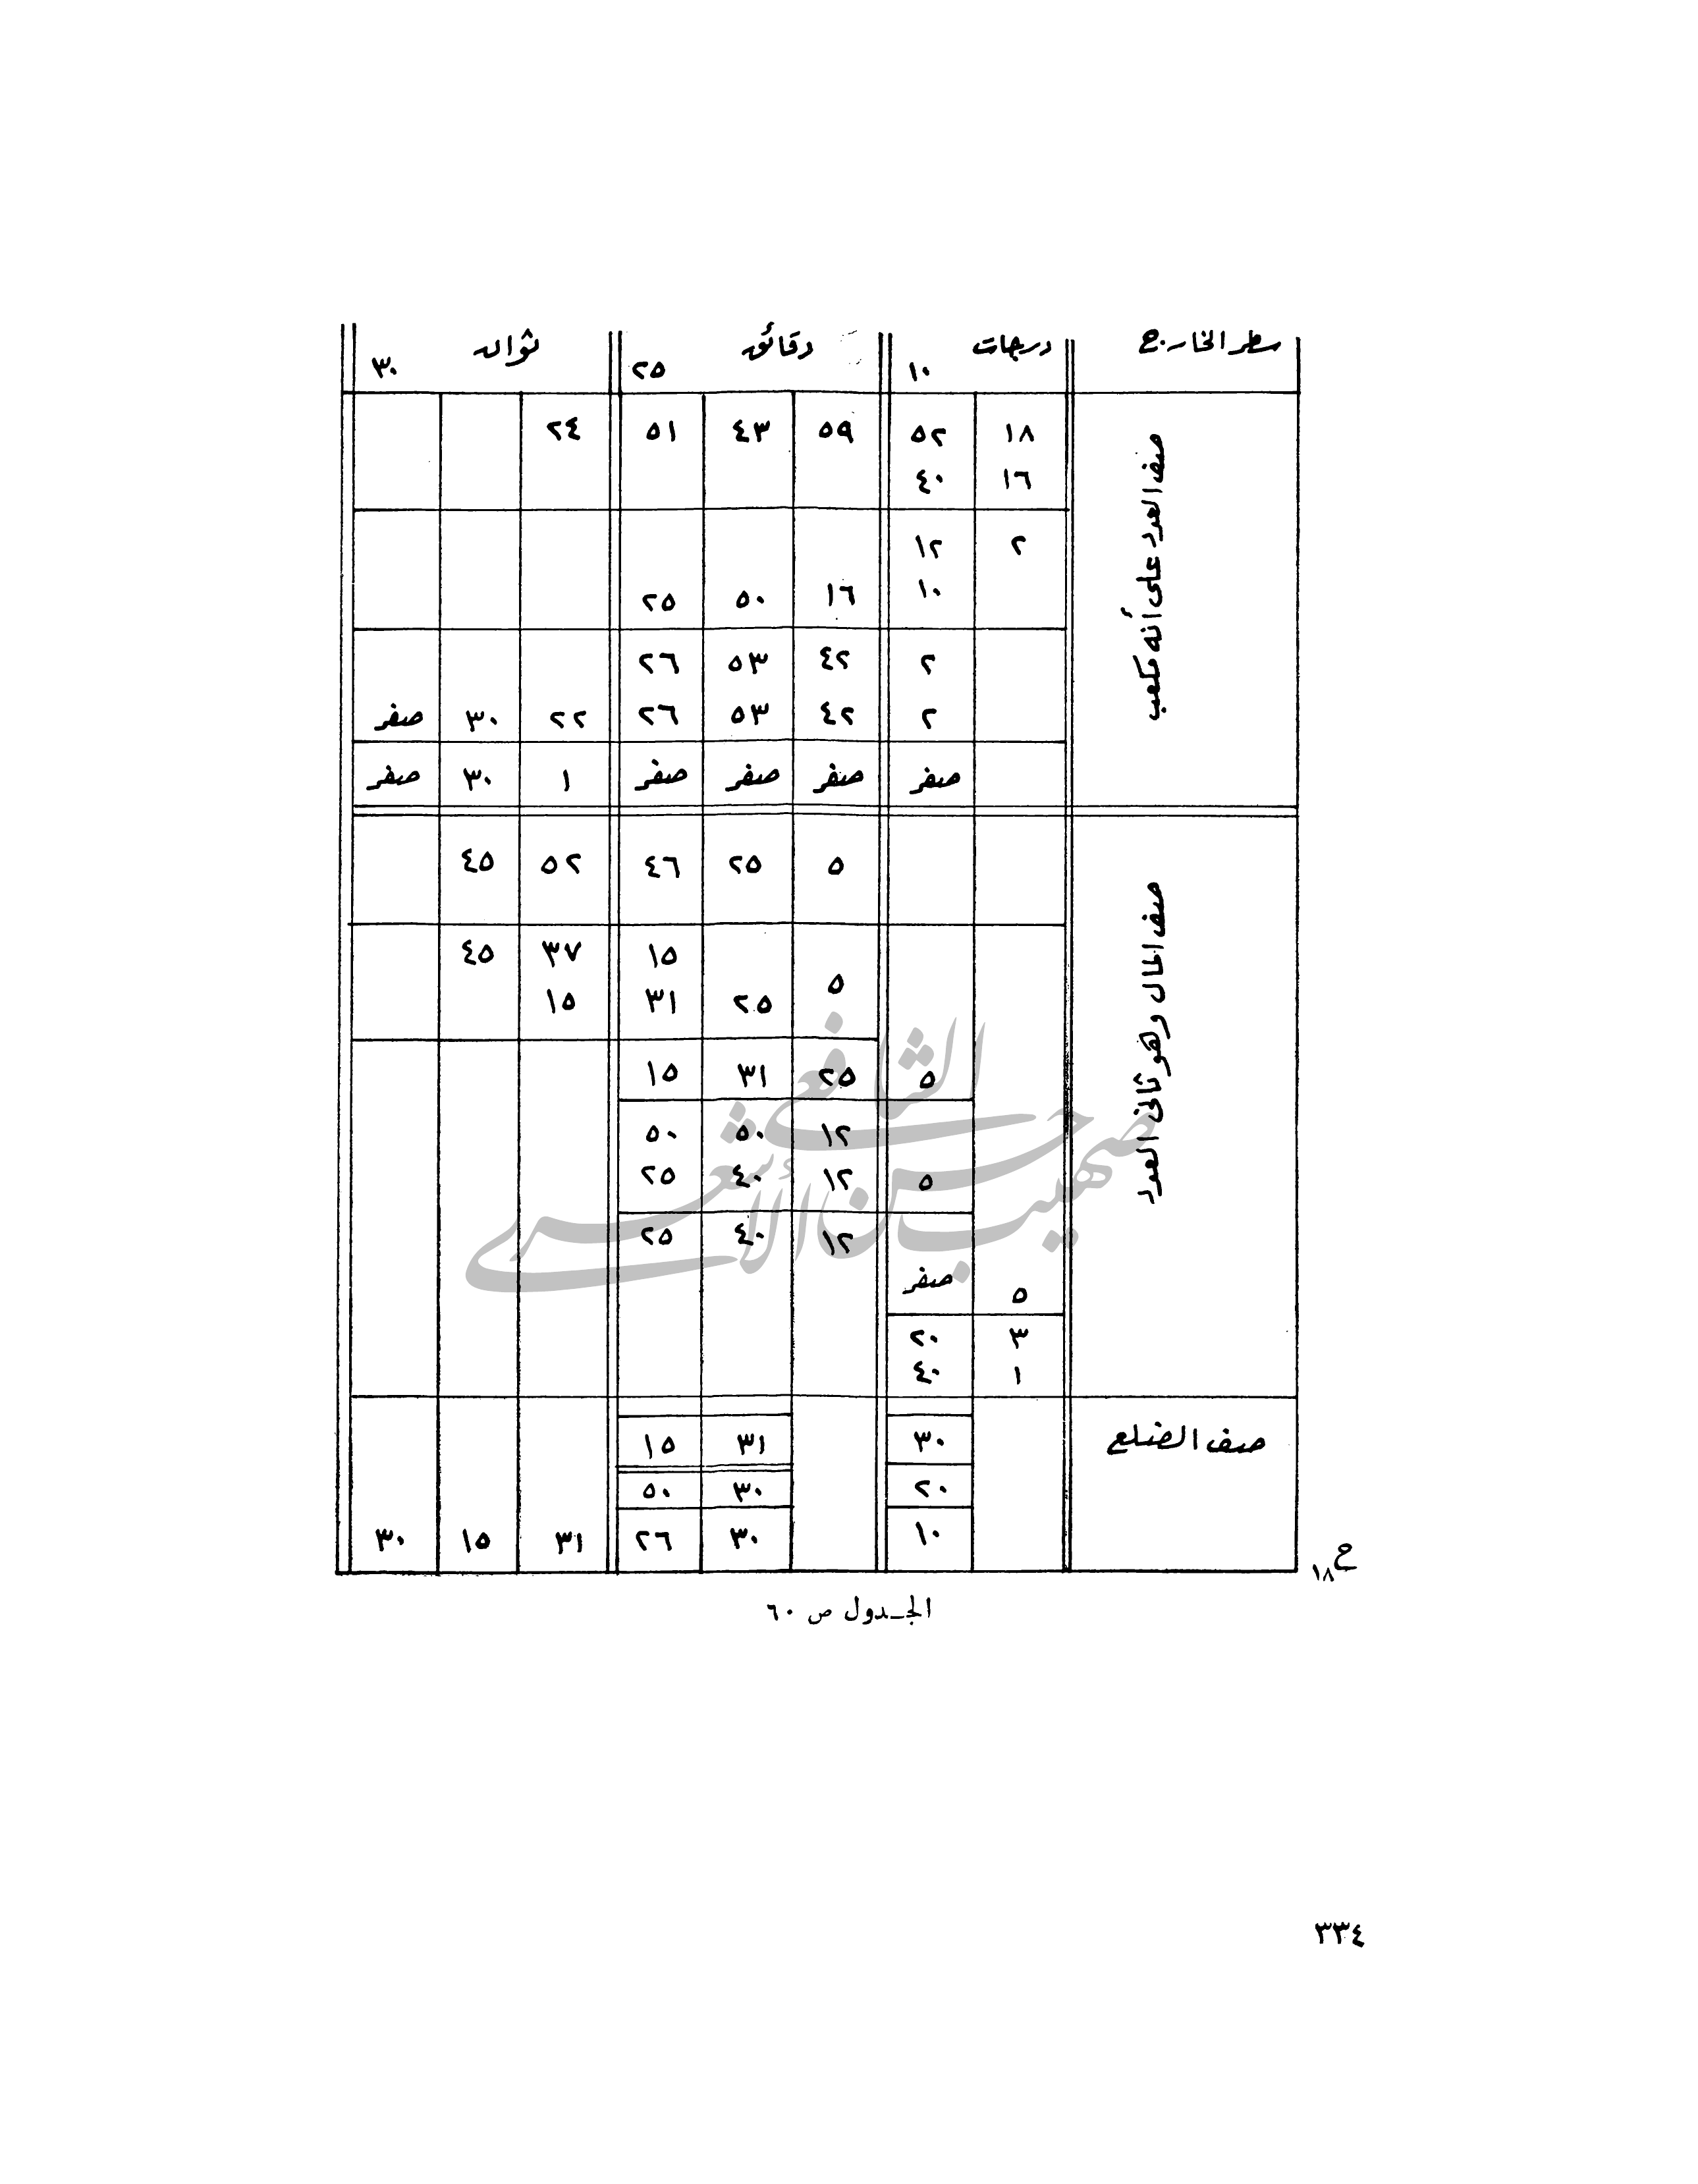 سطر الخارج درجات ١٠ دقائق ٢٥ ثوان ٣٠
صف العدد على أنه مكعب
١٨ ٥٢ ٥٩ ٤٣ ٥١ ٢٤
١٦ ٤٠
٢ ١٢
١٠ ١٦ ٥٠ ٢٥
٢ ٤٢ ٥٣ ٢٦
٢ ٤٢ ٥٣ ٢٦ ٢٢ ٣٠ صفر
صفر صفر صفر صفر ١ ٣٠ صفر
صف المال وهو ثاني العدد
٥ ٢٥ ٤٦ ٥٢ ٤٥
١٥ ٣٧ ٤٥
٥ ٢٥ ٣١ ١٥
٥ ٢٥ ٣١ ١٥
١٢ ٥٠ ٥٠
٥ ١٢ ٤٠ ٢٥
١٢ ٤٠ ٢٥
٥ صفر
٣ ٢٠
١ ٤٠
صف الضلع ٣٠ ٣١ ١٥
٢٠ ٣٠ ٥٠
١٠ ٣٠ ٢٦ ٣١ ١٥ ٣٠
ح ١٨
الجـدول ص ٦٠
صهيب حسن الشافعي الأشعري
٣٣٤